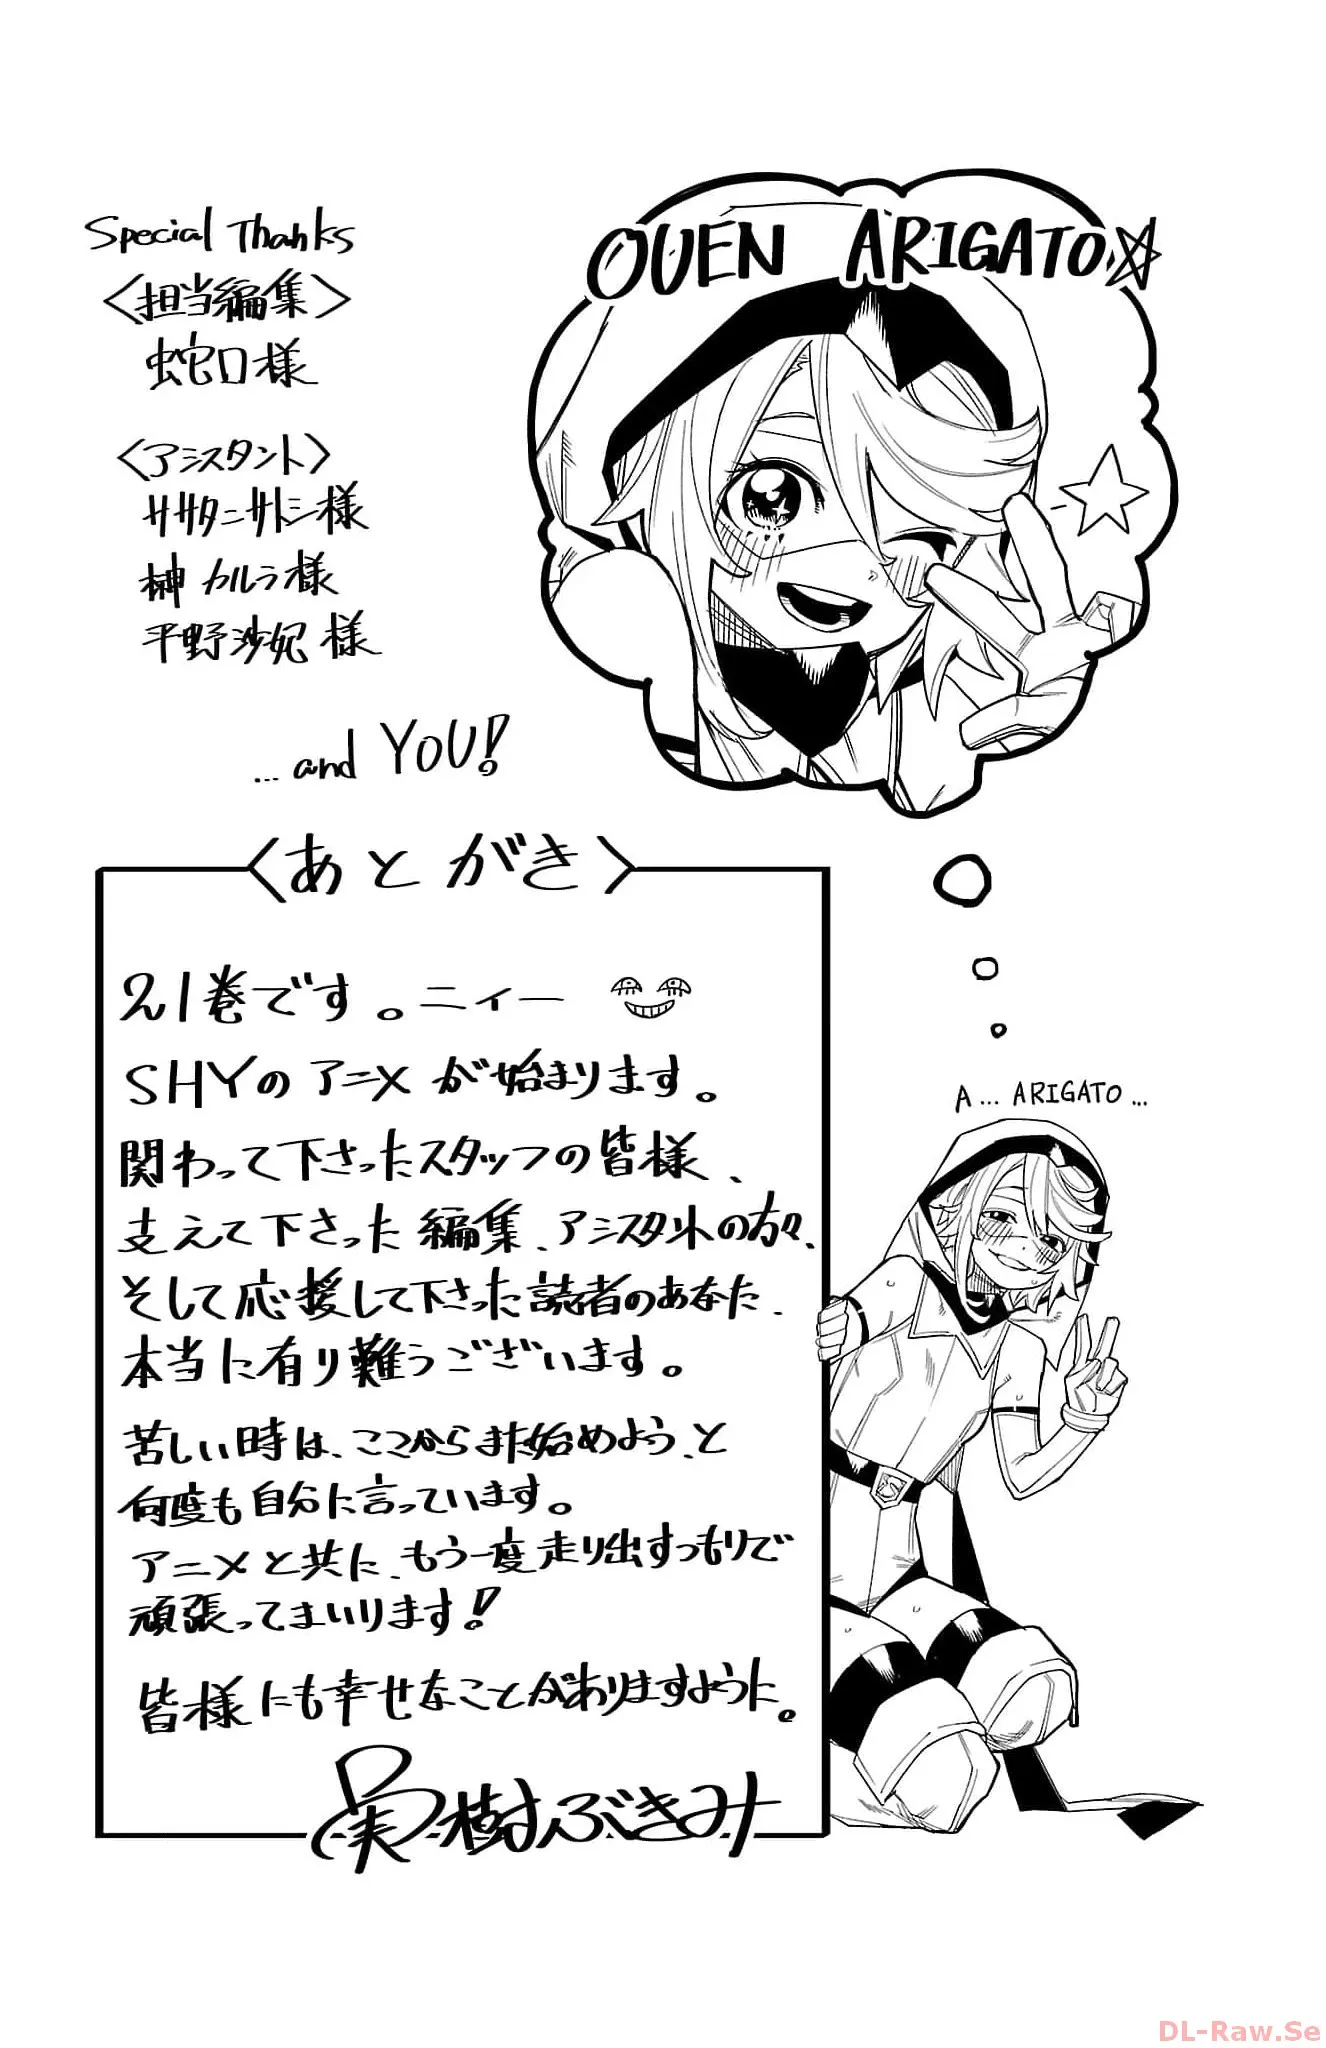 Special Thanks
〈担当編集〉
蛇口様
〈アシスタント〉
ササタニサトシ様
榊カルラ様
平野沙妃様
... and YOU!
OUEN ARIGATO☆
〈あとがき〉
21巻です。ニィー
SHYのアニメが始まります。
関わって下さったスタッフの皆様、
支えて下さった編集、アシスタントの方々、
そして応援して下さった読者のあなた、
本当に有り難うございます。
苦しい時は、ここからまた始めよう、と
何度も自分に言っています。
アニメと共に、もう一度走り出すつもりで
頑張ってまいります!
皆様にも幸せなことがありますように。
実樹ぶきみ
A... ARIGATO...
DL-Raw.Se